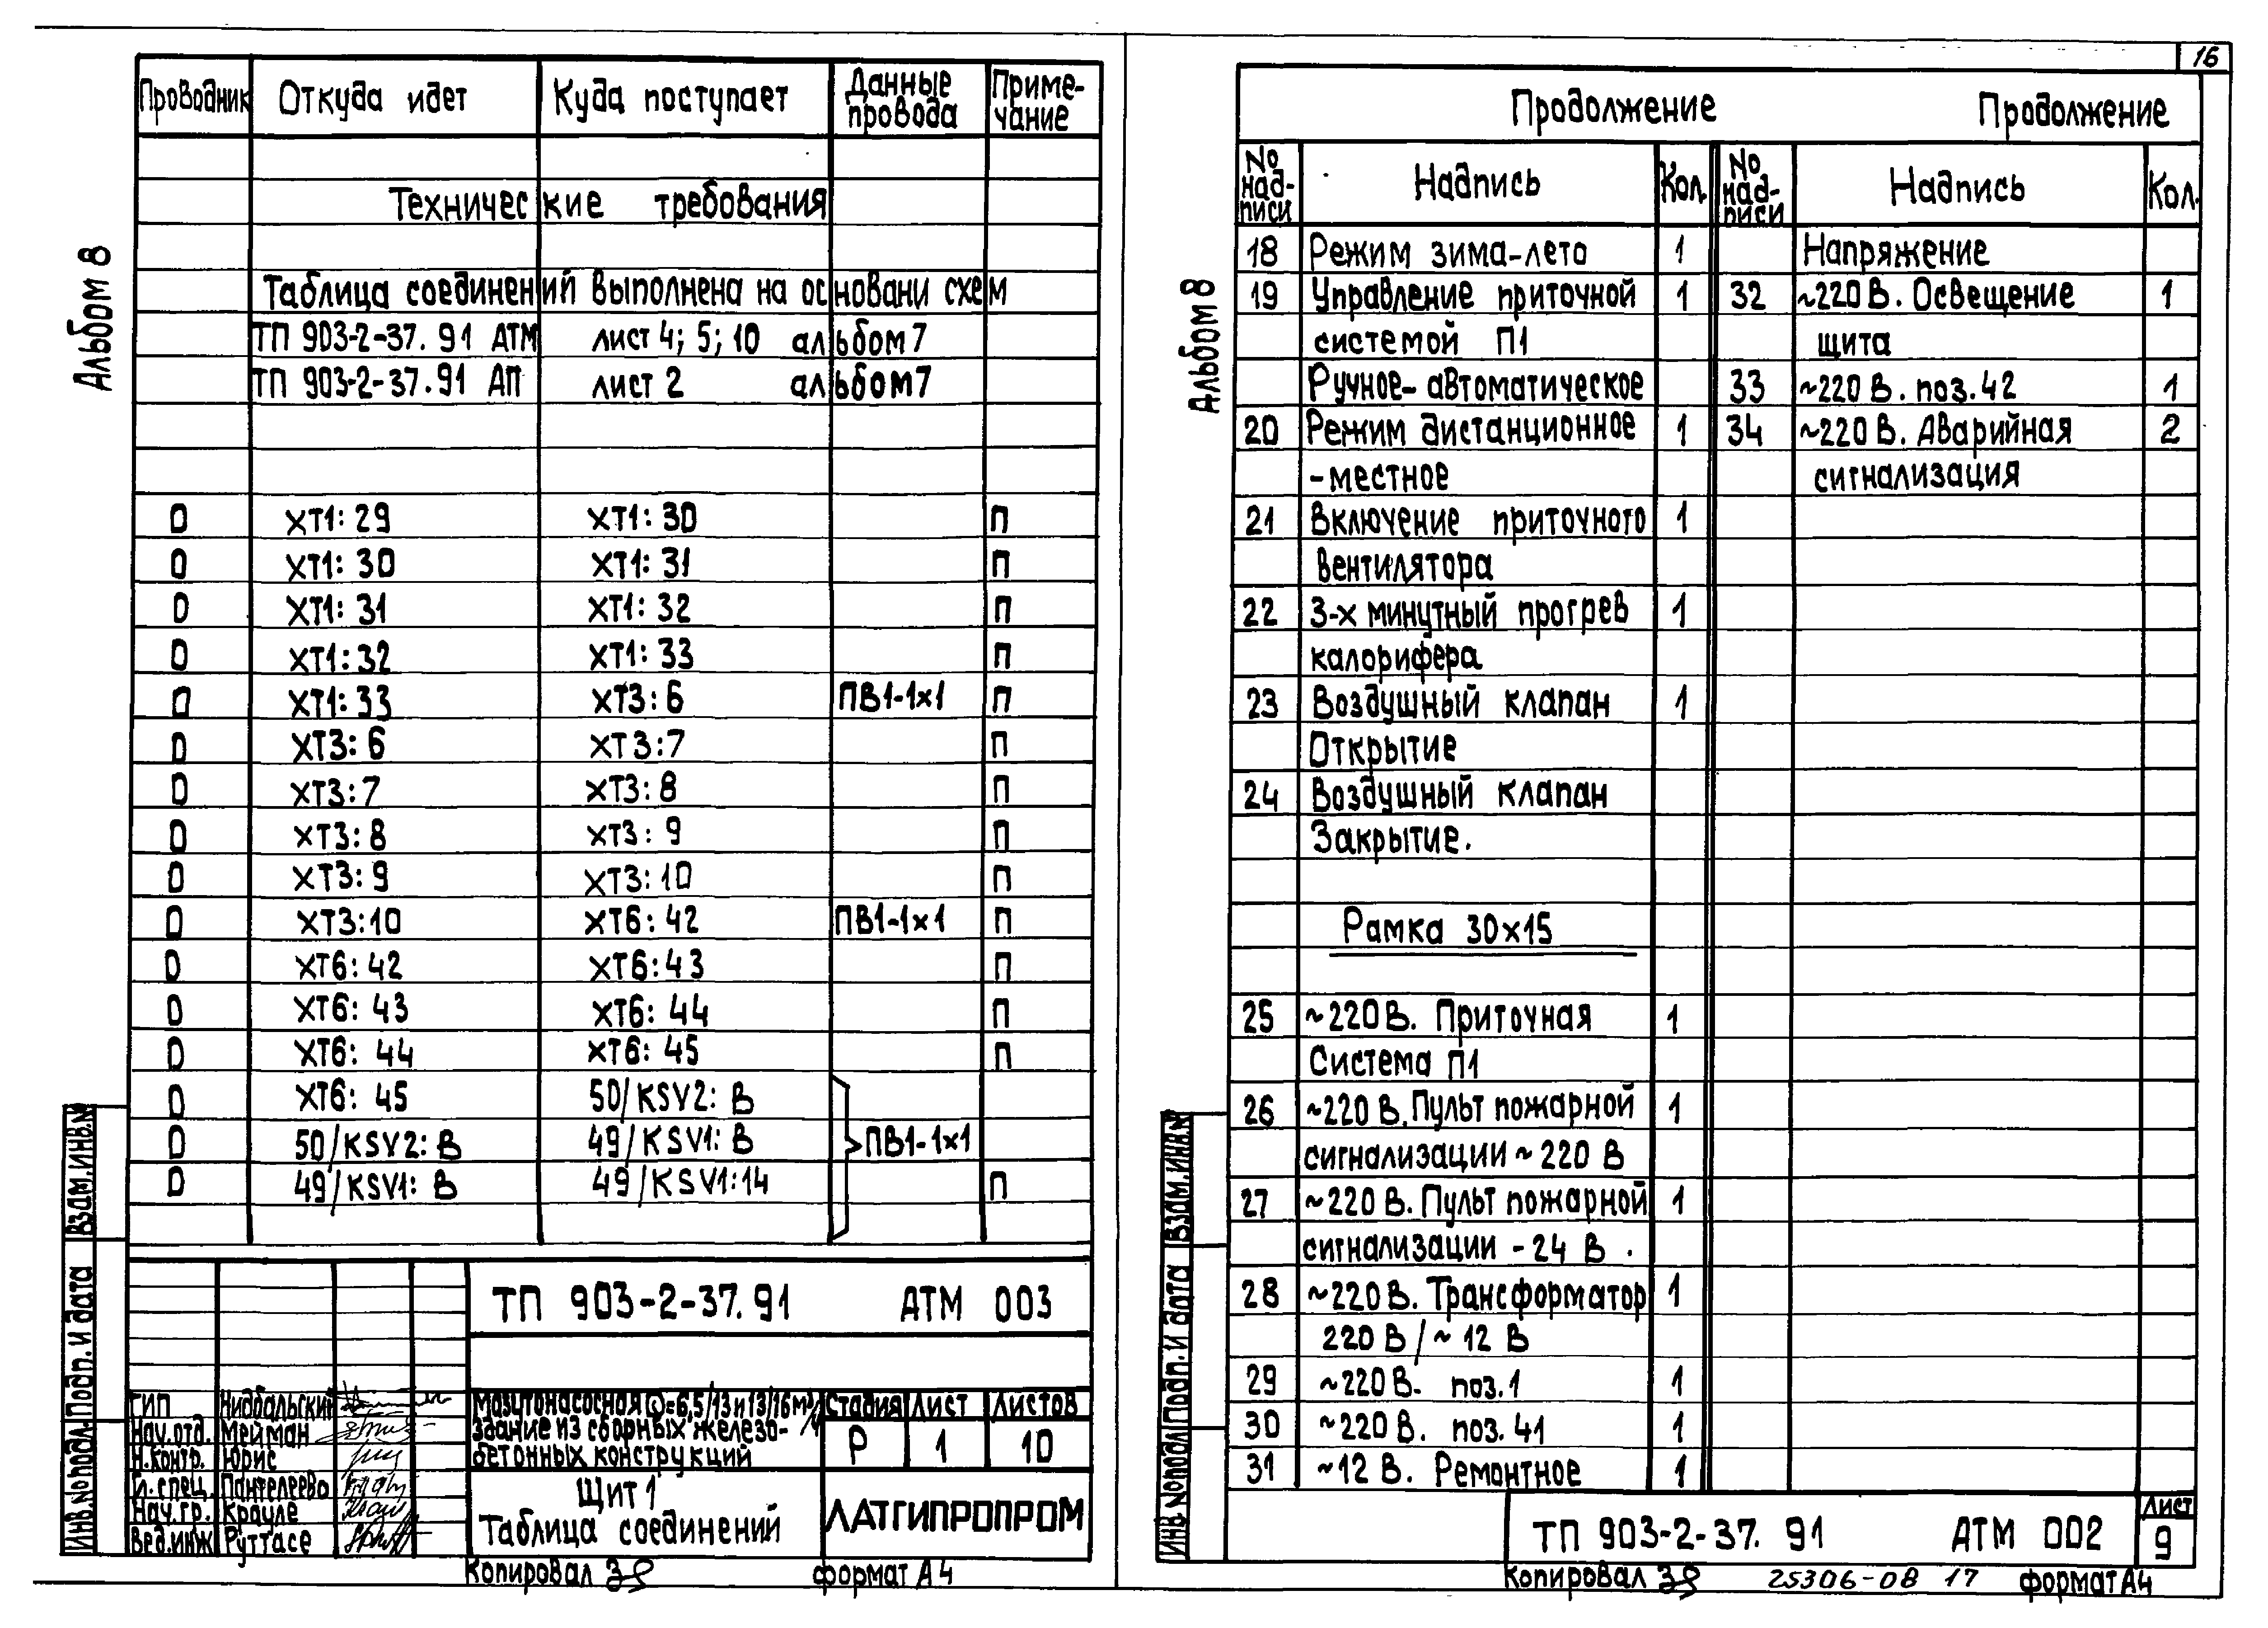 Альбом 8
Проводник Откуда идет Куда поступает Данные провода Приме-чание
Технические требования
Таблица соединений выполнена на основани схем
ТП 903-2-37.91 АТМ лист 4; 5; 10 альбом 7
ТП 903-2-37.91 АП лист 2 альбом 7
0 XT1: 29 XT1: 30 П
0 XT1: 30 XT1: 31 П
0 XT1: 31 XT1: 32 П
0 XT1: 32 XT1: 33 П
0 XT1: 33 XT3: 6 ПВ1-1x1 П
0 XT3: 6 XT3: 7 П
0 XT3: 7 XT3: 8 П
0 XT3: 8 XT3: 9 П
0 XT3: 9 XT3: 10 П
0 XT3: 10 XT6: 42 ПВ1-1x1 П
0 XT6: 42 XT6: 43 П
0 XT6: 43 XT6: 44 П
0 XT6: 44 XT6: 45 П
0 XT6: 45 50/KSV2: В
0 50/KSV2: В 49/KSV1: В ПВ1-1x1
0 49/KSV1: В 49/KSV1: 14 П
Взам. инв. №
Подп. и дата
Инв. № подл.
ТП 903-2-37.91 АТМ 003
ГИП Нидбальский
Нач. отд. Мейман
Н. контр. Юрис
Гл. спец. Пантелеева
Нач. гр. Крауле
Вед. инж Руттасе
Мазутонасосная Q=6,5/13 и 13/16 м³/ч
Здание из сборных железо-
бетонных конструкций
Стадия Лист Листов
Р 1 10
Щит 1
Таблица соединений
ЛАТГИПРОПРОМ
Копировал формат А4
16
Альбом 8
Продолжение Продолжение
No над-писи Надпись Кол. No над-писи Надпись Кол.
18 Режим зима-лето 1 Напряжение
19 Управление приточной 1 32 ~220 В. Освещение 1
системой П1 щита
Ручное- автоматическое 33 ~220 В. поз. 42 1
20 Режим дистанционное 1 34 ~220 В. Аварийная 2
- местное сигнализация
21 Включение приточного 1
вентилятора
22 3-х минутный прогрев 1
калорифера
23 Воздушный клапан 1
Открытие
24 Воздушный клапан
Закрытие.
Рамка 30x15
25 ~220 В. Приточная 1
Система П1
26 ~220 В. Пульт пожарной 1
сигнализации ~ 220 В
27 ~220 В. Пульт пожарной 1
сигнализации - 24 В.
28 ~220 В. Трансформатор 1
220 В / ~ 12 В
29 ~220 В. поз. 1 1
30 ~220 В. поз. 41 1
31 ~12 В. Ремонтное 1
Взам. инв. №
Подп. и дата
Инв. № подл
ТП 903-2-37.91 АТМ 002
Лист
9
Копировал 25306-08 17 формат А4